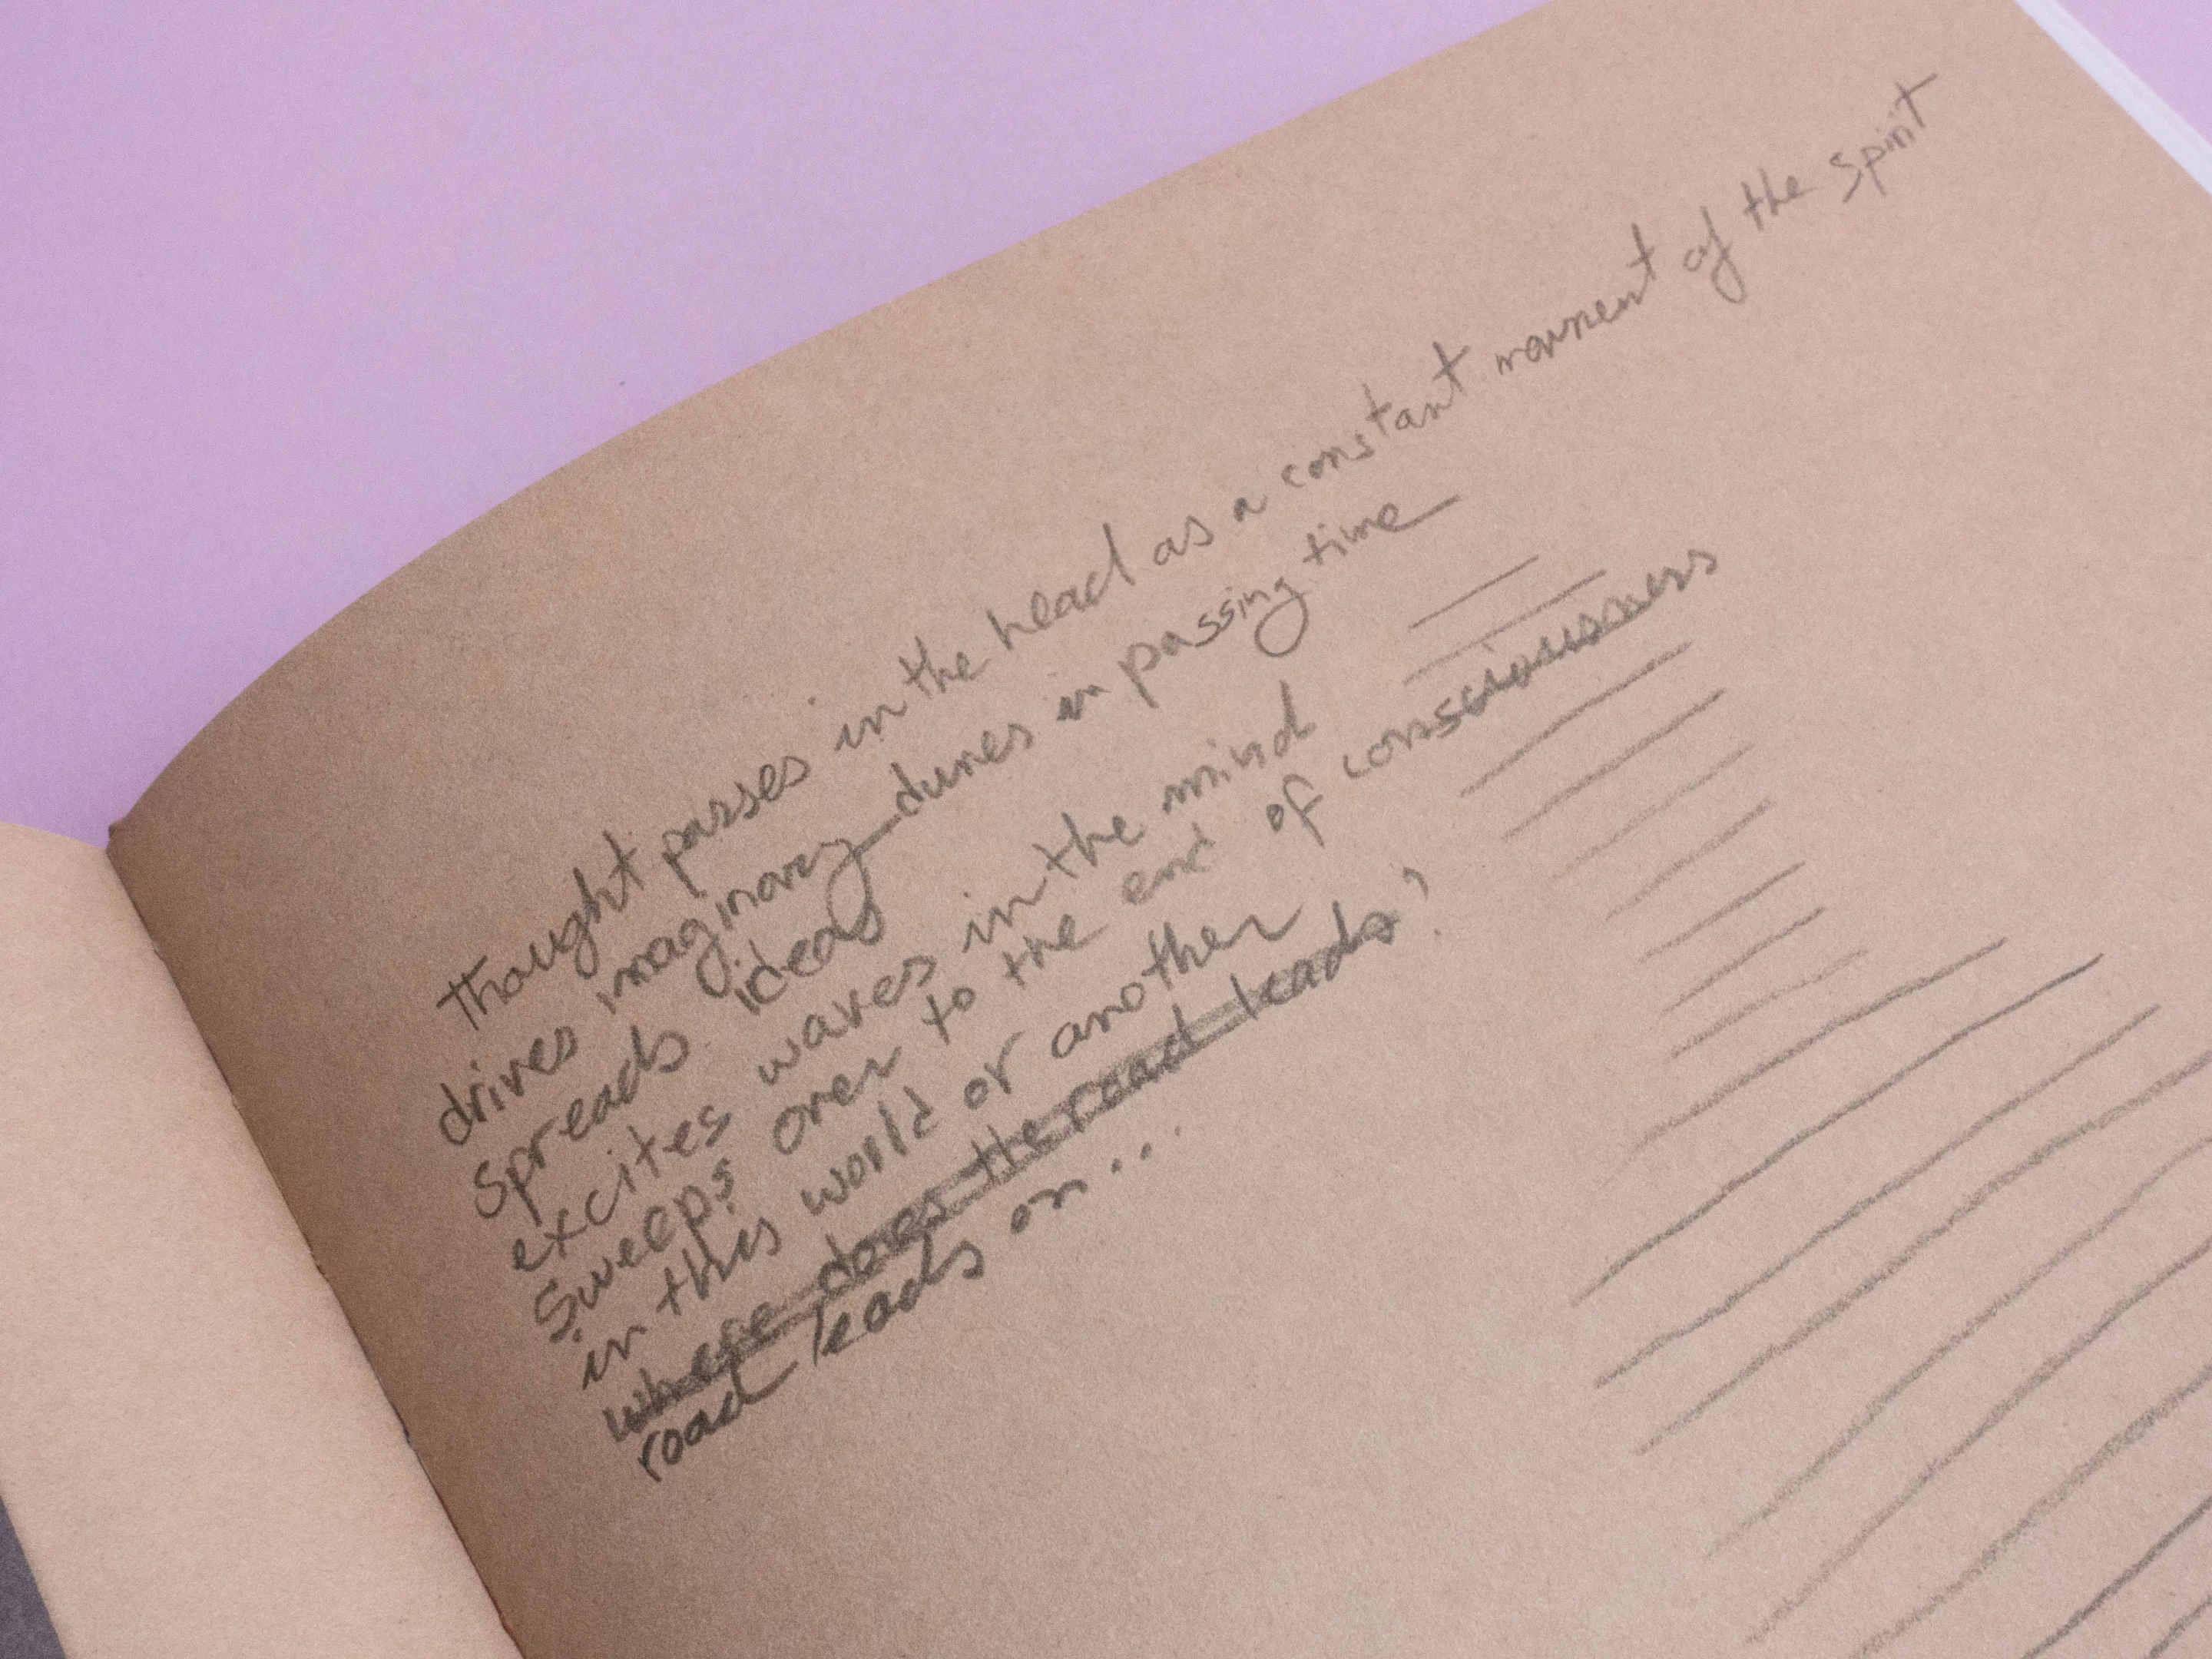 Thought passes in the head as a constant movement of the spirit
drives imaginary dunes in passing time
spreads ideas
excites waves in the mind
sweeps over to the end of consciousness
in this world or another
where does the road leads?
road leads on...